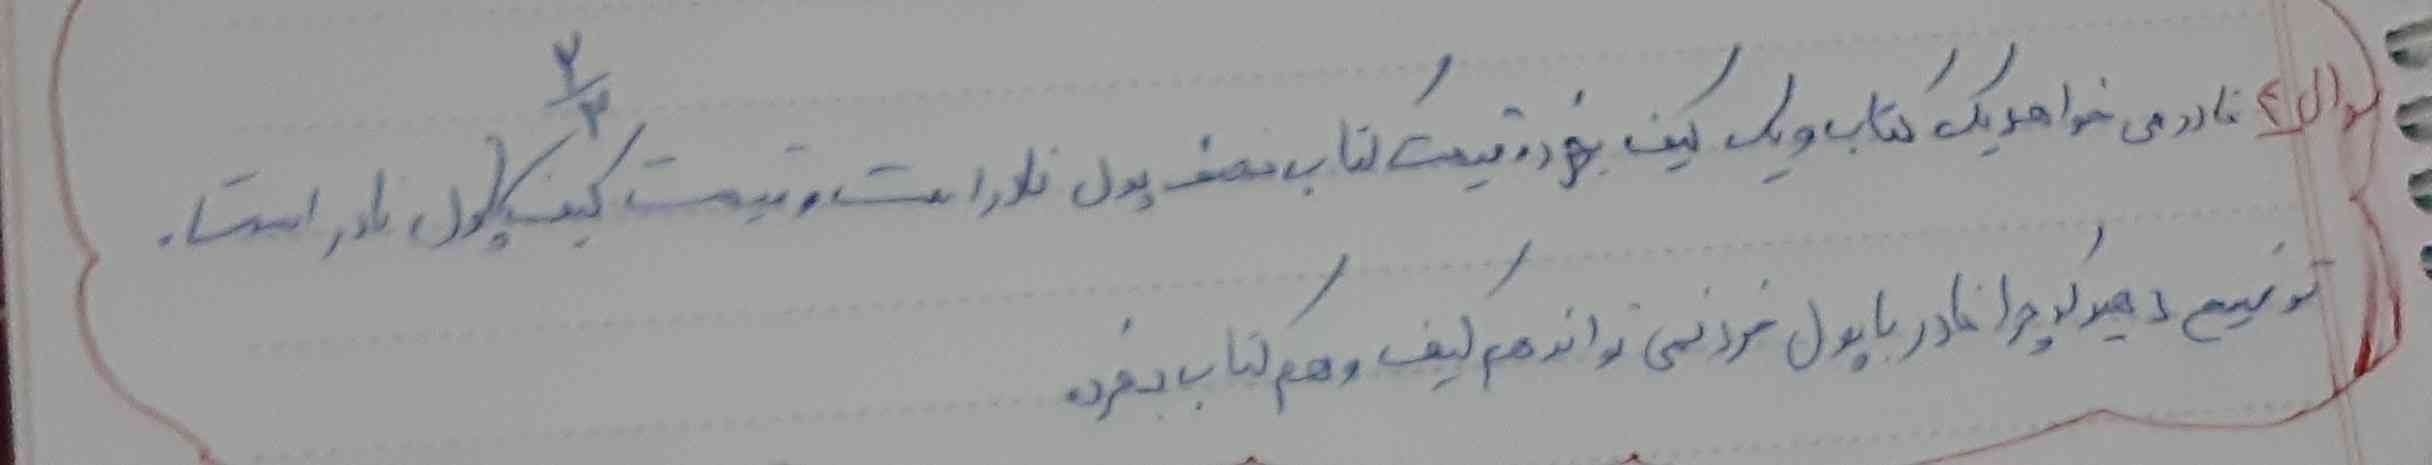 سوال ۴ نادر می خواهد یک کتاب و یک کیف بخرد. قیمت کتاب نصف پول نادر است و قیمت کیف ۲/۳ پول نادر است.
توضیح دهید که چرا نادر با پول خود نمی تواند هم کیف و هم کتاب بخرد.